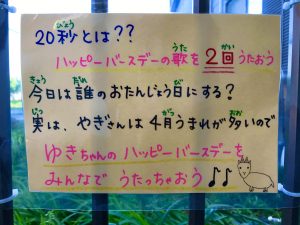 20秒とは??
ハッピーバースデーの歌を2回うたおう
今日は誰のおたんじょう日にする?
実は、やぎさんは4月うまれが多いので
ゆきちゃんのハッピーバースデーを
みんなでうたっちゃおう♪♪